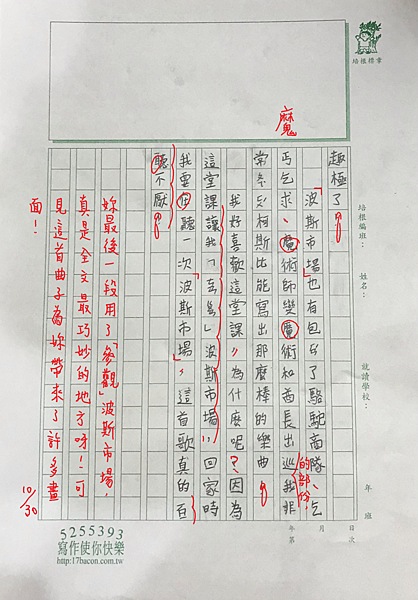 培根標章
魔
趣極了。
「波斯市場」也有包了駱駝商隊、乞
丐乞求、魔術師變魔術和酋長出巡
的部份,
我非
常柯斯比能寫出那麼棒的樂曲。
我好喜歡這堂課!!為什麼呢?因為
這堂課讓我「去」波斯市場,回家時
我要在聽一次「波斯市場」,這首歌真的百
聽不厭。
妳最後一段用了「參觀」波斯市場,
真是全文最巧妙的地方呀!可
見這首曲子為妳帶來了許多畫
面!
10/30
培根編班:
姓名:
就讀學校:
年 班
目次
年 月
第
5255393
寫作使你快樂
http:17bacon.com.tw